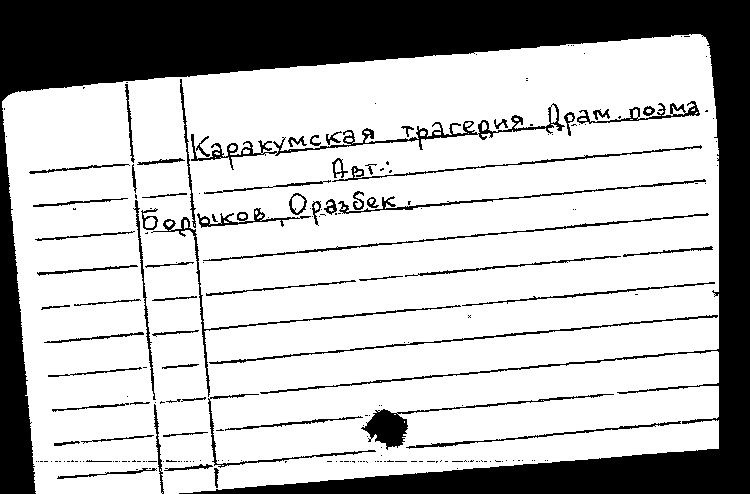 Каракумская трагедия. Драм. поэма.
Авт.:
Бодыков, Оразбек.